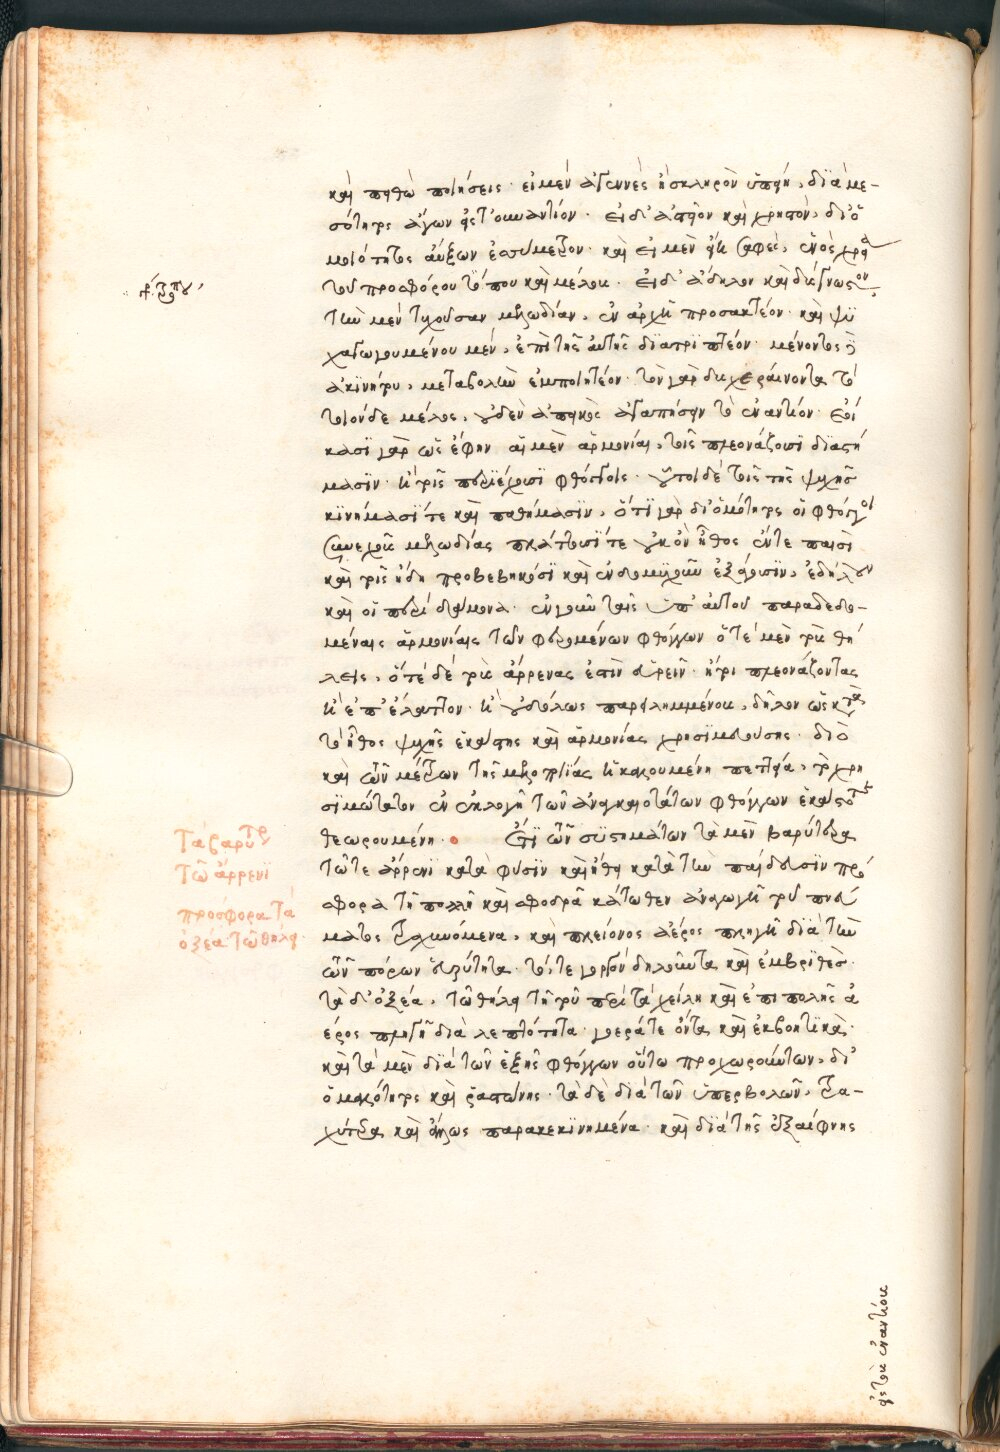 καὶ πειθὼ ποιήσεις· εἰ μὲν ἀγεννὲς ἢ σκληρὸν ὑπῆν, διὰ με-
σότητος ἄγων εἰς τοὐναντίον· εἰ δ' ἀστεῖον καὶ χρηστόν, δι' ὁ
μοιότητος αὔξων ἐς σύμμετρον· καὶ εἰ μὲν εἴη σαφές,
τοῦ προσφόρου τύπου καὶ μέλους· εἰ δ' ἄδηλον καὶ δύσγνωστον
τὴν μὲν τυχοῦσαν μελῳδίαν, ἐν ἀρχῇ προσακτέον· καὶ ψυ
χαγωγουμένου μέν, ἐπὶ τῆς αὐτῆς διατριπτέον· μένοντος δ'
ἀκινήτου, μεταβολὴν ἐμποιητέον· τὸν γὰρ δυσχεραίνοντα τὸ
τοιόνδε μέλος, οὐδὲν ἀπεικὸς ἀγαπήσειν τὸ ἐναντίον· ἐοί
κασι γὰρ ὡς ἔφην αἱ μὲν ἁρμονίαι, τοῖς πλεονάζουσι διαστή
μασιν· ἢ τοῖς περιέχουσι φθόγγοις· οὗτοι δὲ τοῖς τῆς ψυχῆς
κινήμασί τε καὶ παθήμασιν, ὅτι γὰρ δι' ὁμοιότητος οἱ φθόγγοι
συνεχοῦς μελῳδίας πλάττουσί τε οὐκ ὂν ἦθος ἔν τε παισὶ
καὶ τοῖς ἤδη προβεβηκόσι καὶ ἐνδομυχοῦν ἐξάγουσιν, ἐδήλουν
καὶ οἱ περὶ δάμωνα· ἐν γοῦν ταῖς ὑπ' αὐτοῦ παραδεδο-
μέναις ἁρμονίαις τῶν φερομένων φθόγγων ὁτὲ μὲν τοὺς θή
λεις, ὁτὲ δὲ τοὺς ἄρρενας ἔστιν εὑρεῖν· ἤτοι πλεονάζοντας
ἢ ἐπ' ἔλαττον· ἢ οὐδόλως παρειλημμένους, δῆλον ὡς κατὰ
τὸ ἦθος ψυχῆς ἑκάστης καὶ ἁρμονίας χρησιμευούσης· διὸ
καὶ τῶν μερῶν τῆς μελοποιΐας ἡ καλουμένη πεττεία, τὸ χρη
σιμώτατον ἐν ἐκλογῇ τῶν ἀναγκαιοτάτων φθόγγων ἑκάστοτε
θεωρουμένη· Ἔτι τῶν συστημάτων τὰ μὲν βαρύτερα
τῷ τε ἄρρενι κατὰ φύσιν καὶ ἤθει κατὰ τὴν παίδευσιν πρό
σφορα τῇ πολλῇ καὶ σφοδρᾷ κάτωθεν ἀναγωγῇ τοῦ πνεύ
ματος τραχυνόμενα, καὶ πλείονος ἀέρος πληγῇ διὰ τὴν
τῶν πόρων εὐρύτητα· τό, τε γοργὸν δηλοῦντα καὶ ἐμβριθές·
τὰ δ' ὀξέα, τῷ θήλει τῇ τοῦ περὶ τὰ χείλη καὶ ἐπιπολῆς ἀ
έρος πληγῇ διὰ λεπτότητα· γοερά τε ὄντα καὶ ἐκβοητικά·
καὶ τὰ μὲν διὰ τῶν ἑξῆς φθόγγων οὕτω προχωρούντων, δι'
ὁμαλότητος καὶ ῥαστώνης· τὰ δὲ διὰ τῶν ὑπερβολῶν, τρα-
χύτερα καὶ ὅλως παρακεκινημένα· καὶ διὰ τῆς ἐξαίφνης
τὰ βαρύτερα
τῷ ἄρρενι
πρόσφορα τὰ
ὀξέα τῷ θήλει
εἰς τοὺς ἐναντίους